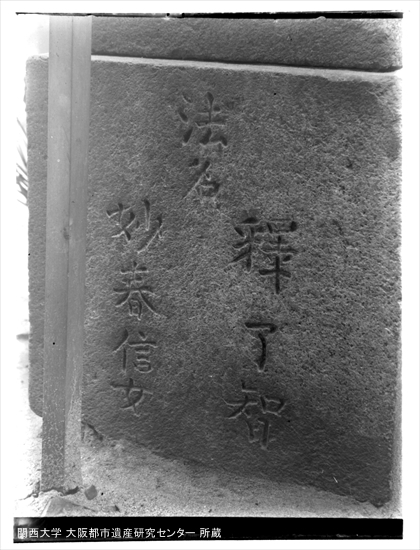 法名
釋了智
妙春信女
関西大学 大阪都市遺産研究センター 所蔵